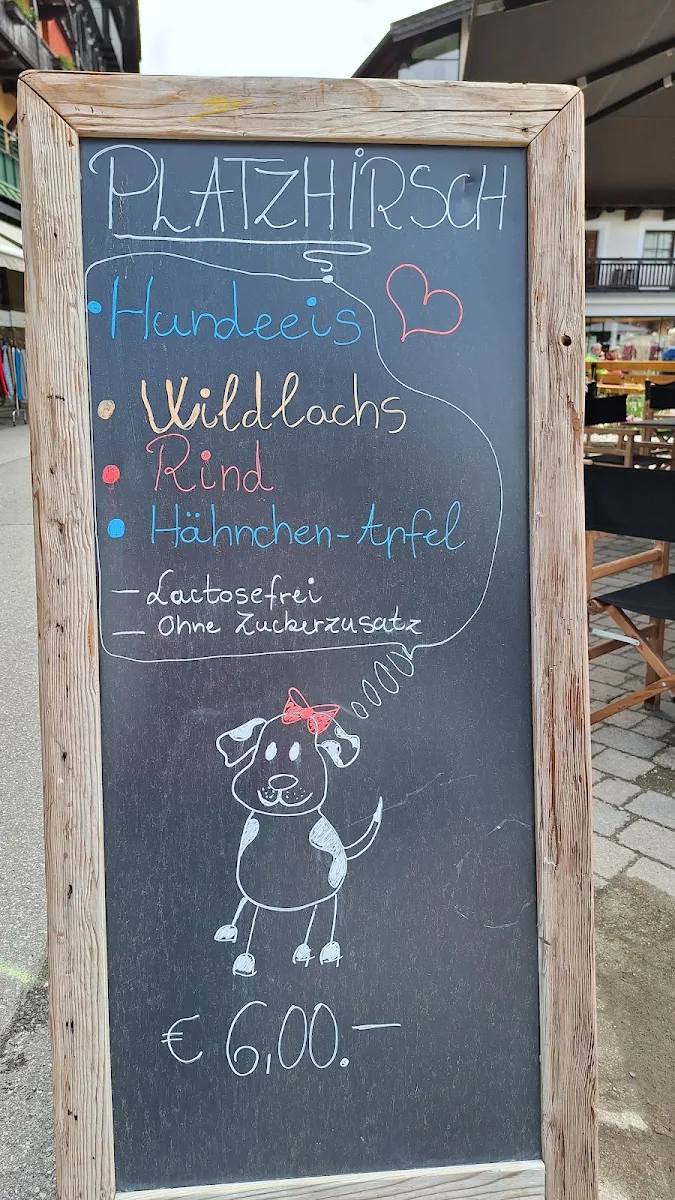 PLATZHIRSCH
• Hundeeis
• Wildlachs
• Rind
• Hähnchen-Apfel
— Lactosefrei
— Ohne Zuckerzusatz
€ 6,00.—